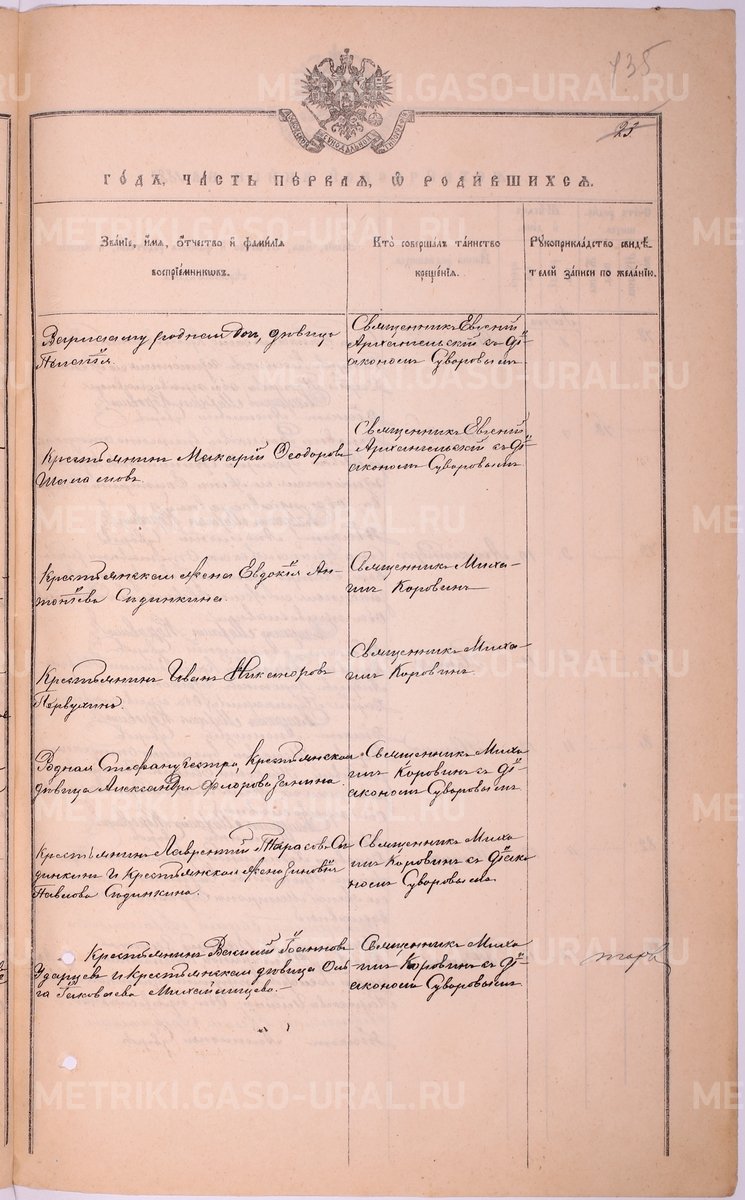 435
23.
ГОДЪ, ЧАСТЬ ПЕРВАЯ, Ѡ РОДИВШИХСЯ.
Званіе, имя, отчество и фамилія
воспріемниковъ.
Кто совершалъ таинство
крещенія.
Рукоприкладство свидѣ-
телей записи по желанію.
родная дочь, дѣвица
Священникъ Евгеній
Архангельскій съ Ді-
акономъ Суворовымъ
Крестьянинъ Макарій Ѳеодоровъ
Шаламовъ.
Священникъ Евгеній
Архангельскій съ Ді-
акономъ Суворовымъ.
Крестьянская жена Евдокія Ан-
Сединкина.
Священникъ Миха-
илъ Коровинъ
Крестьянинъ Иванъ Никаноровъ
Первухинъ.
Священникъ Миха-
илъ Коровинъ.
Родная Стефану сестра, Крестьянская
дѣвица Александра Флорова Занина.
Священникъ Миха-
илъ Коровинъ съ Ді-
акономъ Суворовымъ
Крестьянинъ Лаврентій Тарасовъ Се-
динкинъ и Крестьянская жена Зиновія
Павлова Сединкина.
Священникъ Миха-
илъ Коровинъ съ Діако-
номъ Суворовымъ.
Крестьянинъ Василій Іоанновъ
Ударцевъ и Крестьянская дѣвица Оль-
га Іаковлева Михайлищева.-
Священникъ Миха-
илъ Коровинъ съ Ді-
акономъ Суворовымъ
METRIKI.GASO-URAL.RU